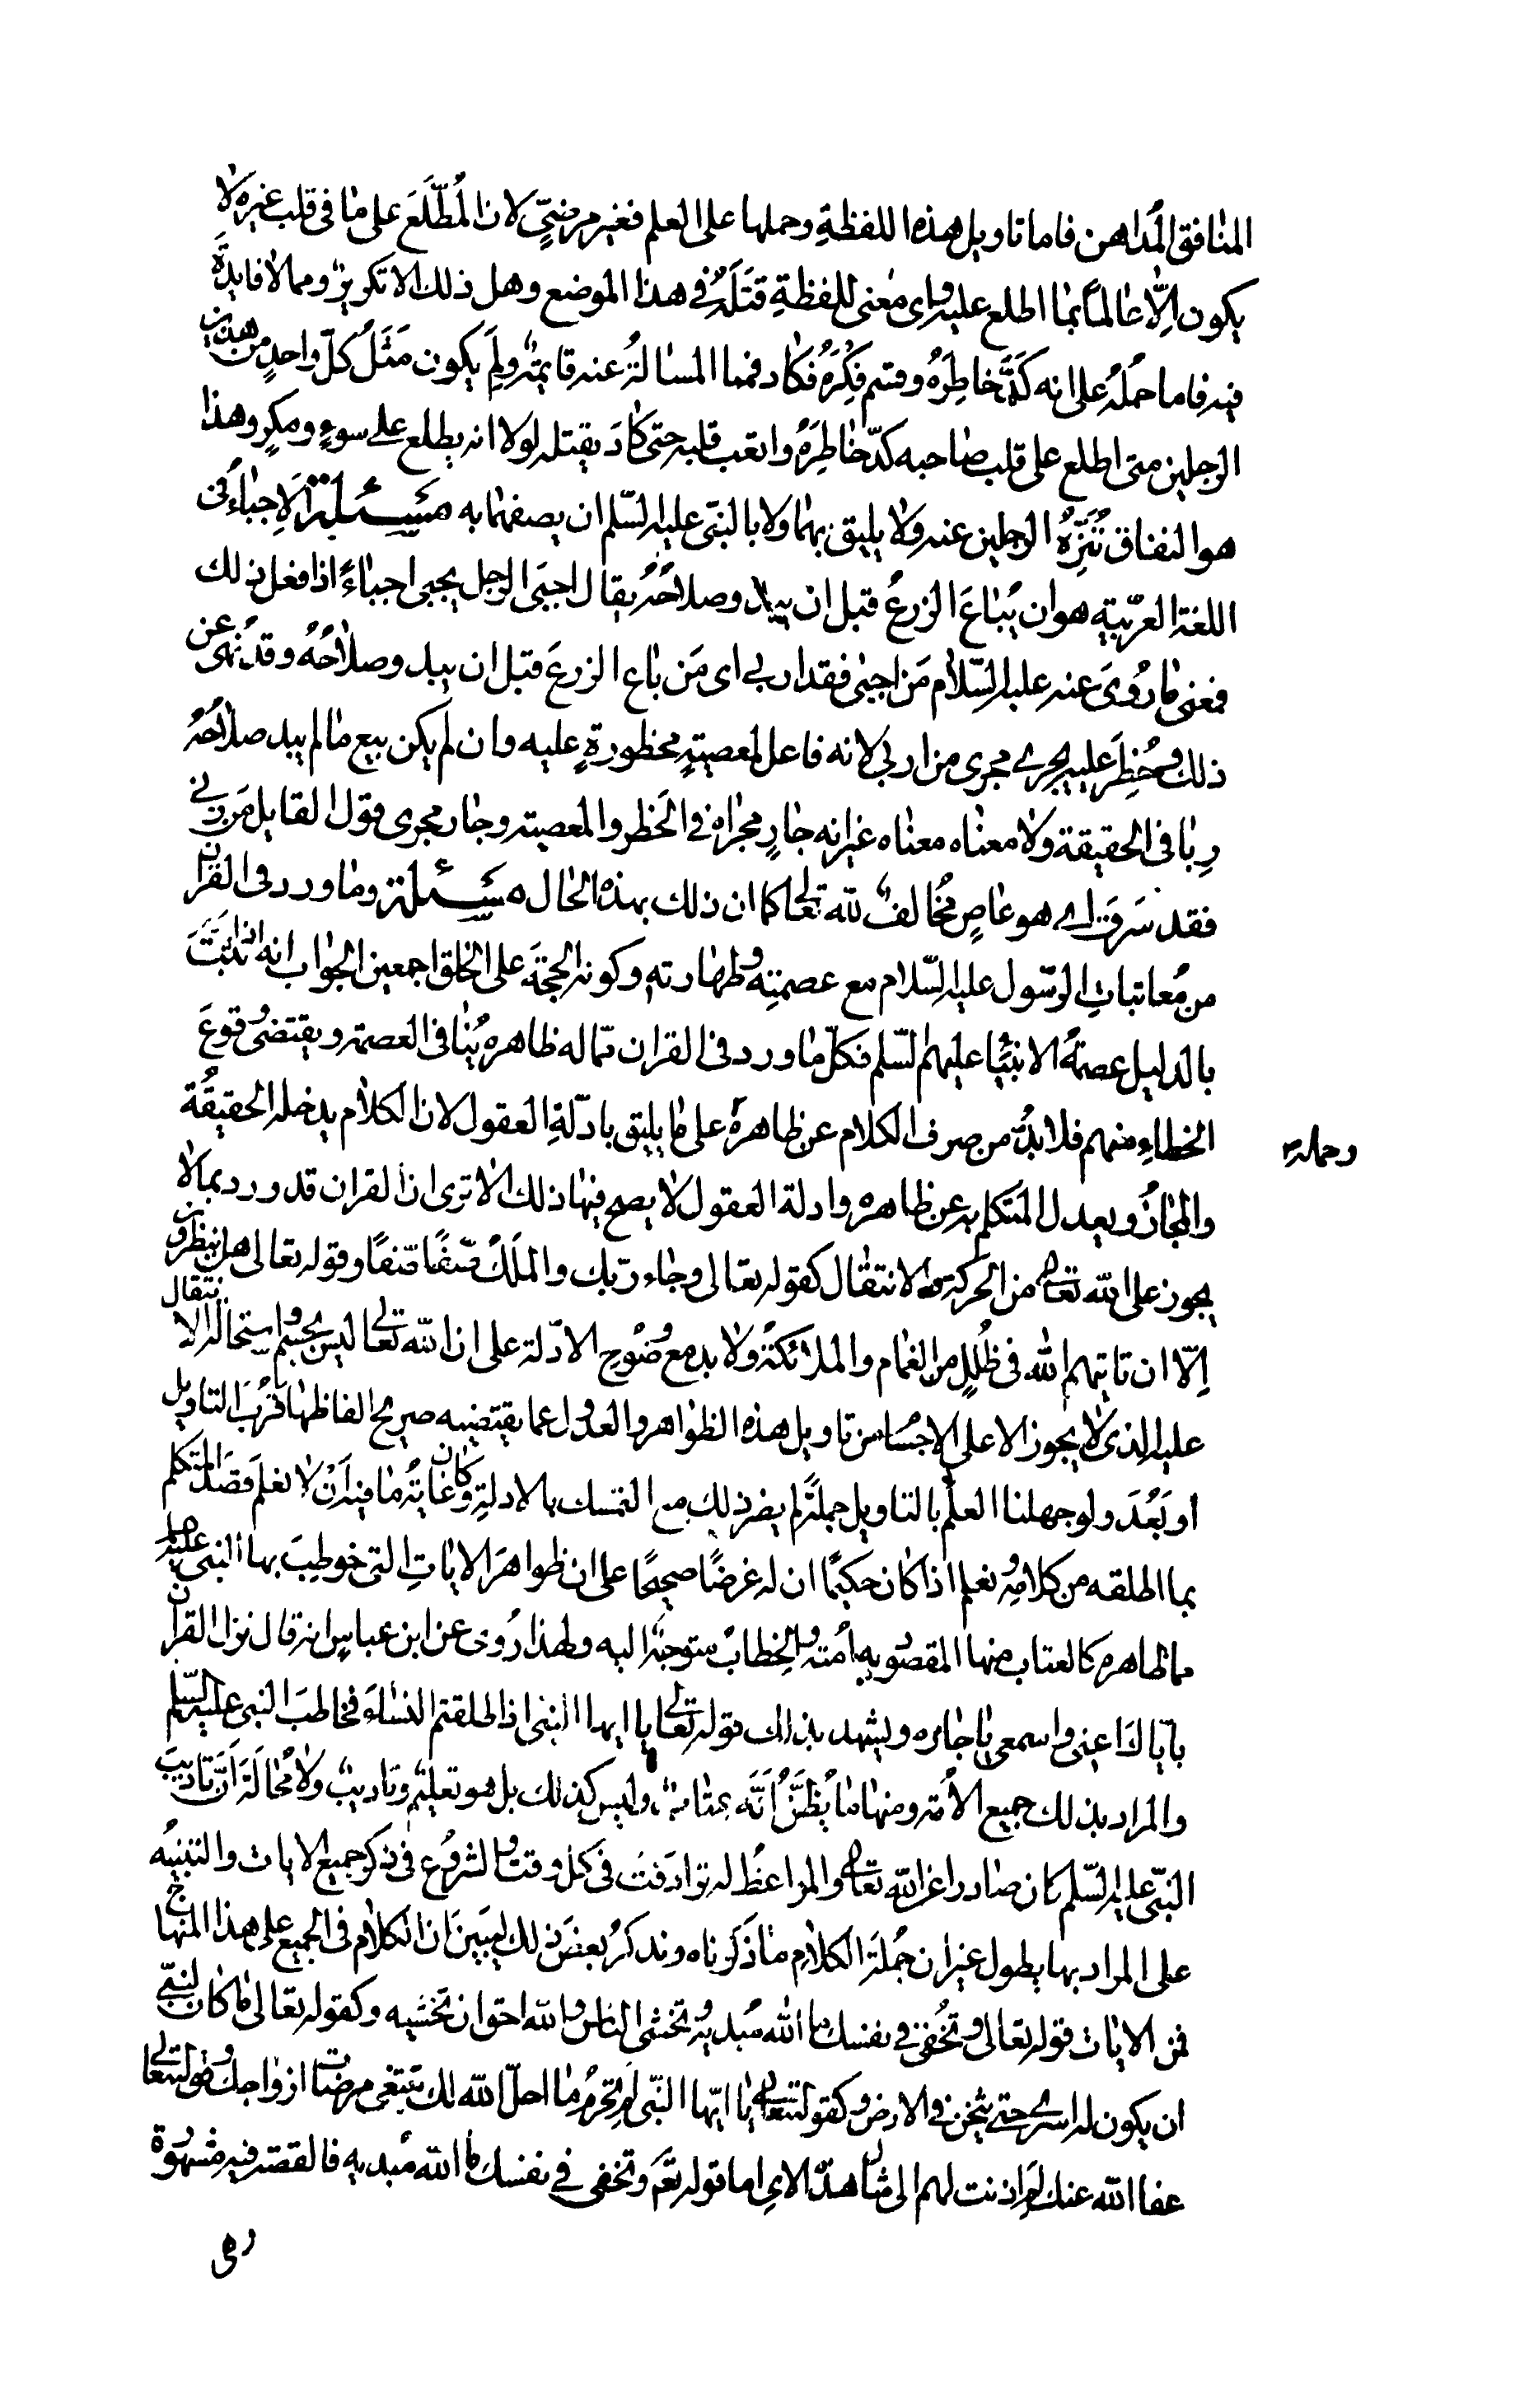 المنافق المُداهن فاما تاويل هذه اللفظةِ وحملها على العلم فغير مرضيٍّ لان المُطّلَعَ على ما فى قلب غيره لا
يكون اِلّا عالماً بما اطلع عليه واى معنى للفظةِ قتَلَهُ فى هذا الموضع وهل ذلك الا تكريرٌ ومما لا فايدةَ
فيه فاما حملُهُ على انه كَدَّ خاطِرَهُ وقسم فِكْرَهُ فكاد فما المسالةُ عنه قايمةٌ ولِمَ يكون مَثَلُ كلّ واحدٍ من هذين
الرجلين متى اطلع على قلب صاحبه كدّ خاطِرَهُ واتعب قلبه حتى كادَ يقتله لولا انه يطلع على سوءٍ ومكرٍ وهذا
هو النفاق نُنَزِّهُ الرجلين عنه ولا يليق بهما ولا بالنبّى عليه السّلم ان يصفهما به مسئلة الاِجباءُ فى
اللغة العربّية هو ان يُباعَ الزرعُ قبل ان يبدو صلاحُهُ يقال اجبَى الرجل يجبى اجباءً اذا فعل ذلك
فمعنى ما رُوىَ عنه عليه السّلام مَن اجبى فقد اربى اى مَن باع الزرعَ قبل ان يبدو صلاحُهُ وقد نُهىَ عن
ذلك وحُظِرَ عليه يجرى مجرى من اربى لانه فاعل لمعصيةٍ محظورةٍ عليه وان لم يكن بيع ما لم يبد صلاحُهُ
رِبا فى الحقيقة ولا معناه معناه غير انه جارٍ مجراه فى الحَظر والمعصية وجار مجرى قول القايل مَن زنى
فقد سَرَقَ اى هو عاصٍ مُخالفٌ لله تعالى كما ان ذلك بهذه الحال مسئلة وما ورد فى القران
من مُعاتباتِ الرّسول عليه السّلام مع عصمتِه وطهارته وكونه الحجّةَ على الخلق اجمعين الجواب انه اذا ثبَتَ
بالدليل عصمةُ الانبيَّا عليهم السّلم فكلّ ما ورد فى القران ممّا له ظاهره يُنافى العصمة ويقتضى وُقوعَ
الخطاءِ منهم فلا بدَُّ من صرف الكلام عن ظاهرهِ على ما يليق بادلّةِ العقول لان الكلام يدخله الحقيقَُة
وحمله
والمجازُ ويعدل المتكلم به عن ظاهره وادلة العقول لا يصح فيها ذلك الا ترى ان القران قد ورد بما لا
يجوز على الله تعالى من الحركة والانتقال كقوله تعالى وجاء ربّك والمَلَكُ صَفّاً صّفاً وقوله تعالى هل ينظرون
اِلّا ان تاتيهم الله فى ظُلَلٍ من الغمام والملائكةُ ولا بد مع وُضُوحِ الادّلة على ان الله تعالى ليس بجسم واستحالة الانتقال
عليه الذى لا يجوز الا على الاجسام من تاويل هذه الظواهر والعدول عما يقتضيه صريح الفاظها قَرُبَ التاويل
او بَعُدَ ولو جهلنا العلم بالتاويل جملةً لم يضر ذلك مع التمسك بالادلةِ وكان غايةُ ما فيه اَنْ لا نعلمَ قصدَ المتكلم
بما اطلقه من كلامِه ونعلم اذا كان حكيمًا ان له غرضًا صحيحًا على ان ظواهرَ الاياتِ التى خوطِبَ بها النبى عليه
مما ظاهره كالعتاب منها المقصود به اُمته والخِطابُ متوجهًا اليه ولهذا رُوى عن ابن عباسٍ انه قال نزل القران
باّياكَ اعنى واسمعى يا جاره ويشهد بذلك قوله تعالى يا ايها النبى اذا طلقتم النساءَ فخاطبَ النبى عليه السّلم
والمراد بذلك جميع الاُمّة ومنها ما يُظَنُّ اَنّه عتابٌ وليس كذلك بل هو تعليمٌ وتاديبٌ ولا مُحالَةَ اَنّ تاديبَ
النبّى عليه السّلم كان صادرا عن الله تعالى والمواعظُ له ترادَفتْ فى كل وقت والشروُع فى ذكر جميع الايات والتنبيهُ
على المراد بها يطول غير ان جُملَةَ الكلامِ ما ذَكرناه ونذكرُ بعضَ ذلك ليبينَ ان الكلام فى الجميع على هذا المنهاج
فمن الايات قوله تعالى وتُخْفى فى نفسك ما الله مُبديه وتخشى الناس والله احق ان تخشيه وكقوله تعالى ما كان لنبىّ
ان يكون له اسرى حتى يثخن فى الارض وكقوله تعالى يا ايّها النبّى لِمَ تحرّمُ ما احلّ الله لك تبتغى مرضات ازواجك وقوله تعالى
عفا الله عنك لِمَ اذنت لهم الى مثال هذه الاىِ اما قوله تعَ وتخفى فى نفسك ما الله مُبديه فالقصّة فيه مشهُورة